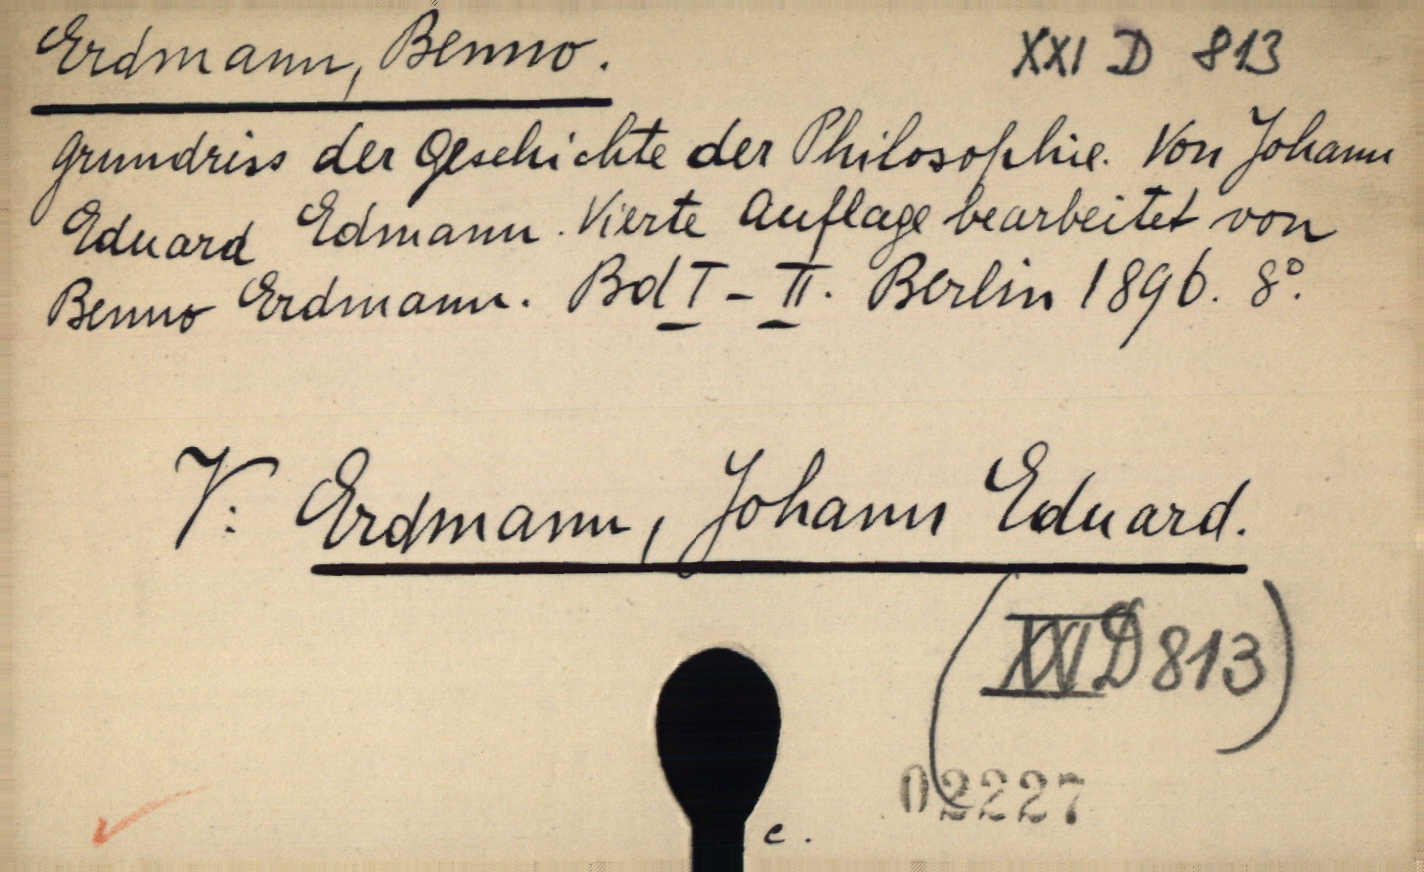 Erdmann, Benno.
XXI D 813
Grundriss der Geschichte der Philosophie. Von Johann
Eduard Edmann. Vierte Auflage bearbeitet von
Benno Erdmann. Bd I - II. Berlin 1896. 8°.
V: Erdmann, Johann Eduard.
(XXI D 813)
02227
c.